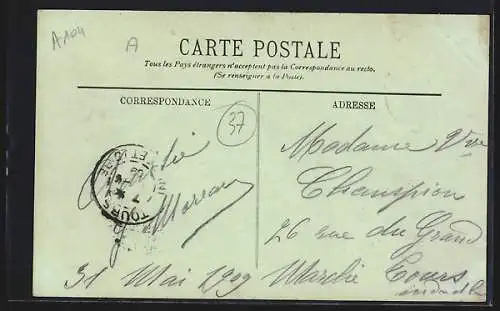 A104
A
CARTE POSTALE
Tous les Pays étrangers n'acceptent pas la Correspondance au recto.
(Se renseigner à la Poste).
CORRESPONDANCE
ADRESSE
37
Madame Vve
Champion
26 rue du Grand
Marché Tours
Moreau
TOURS
ET LOIRE
31 Mai 1909